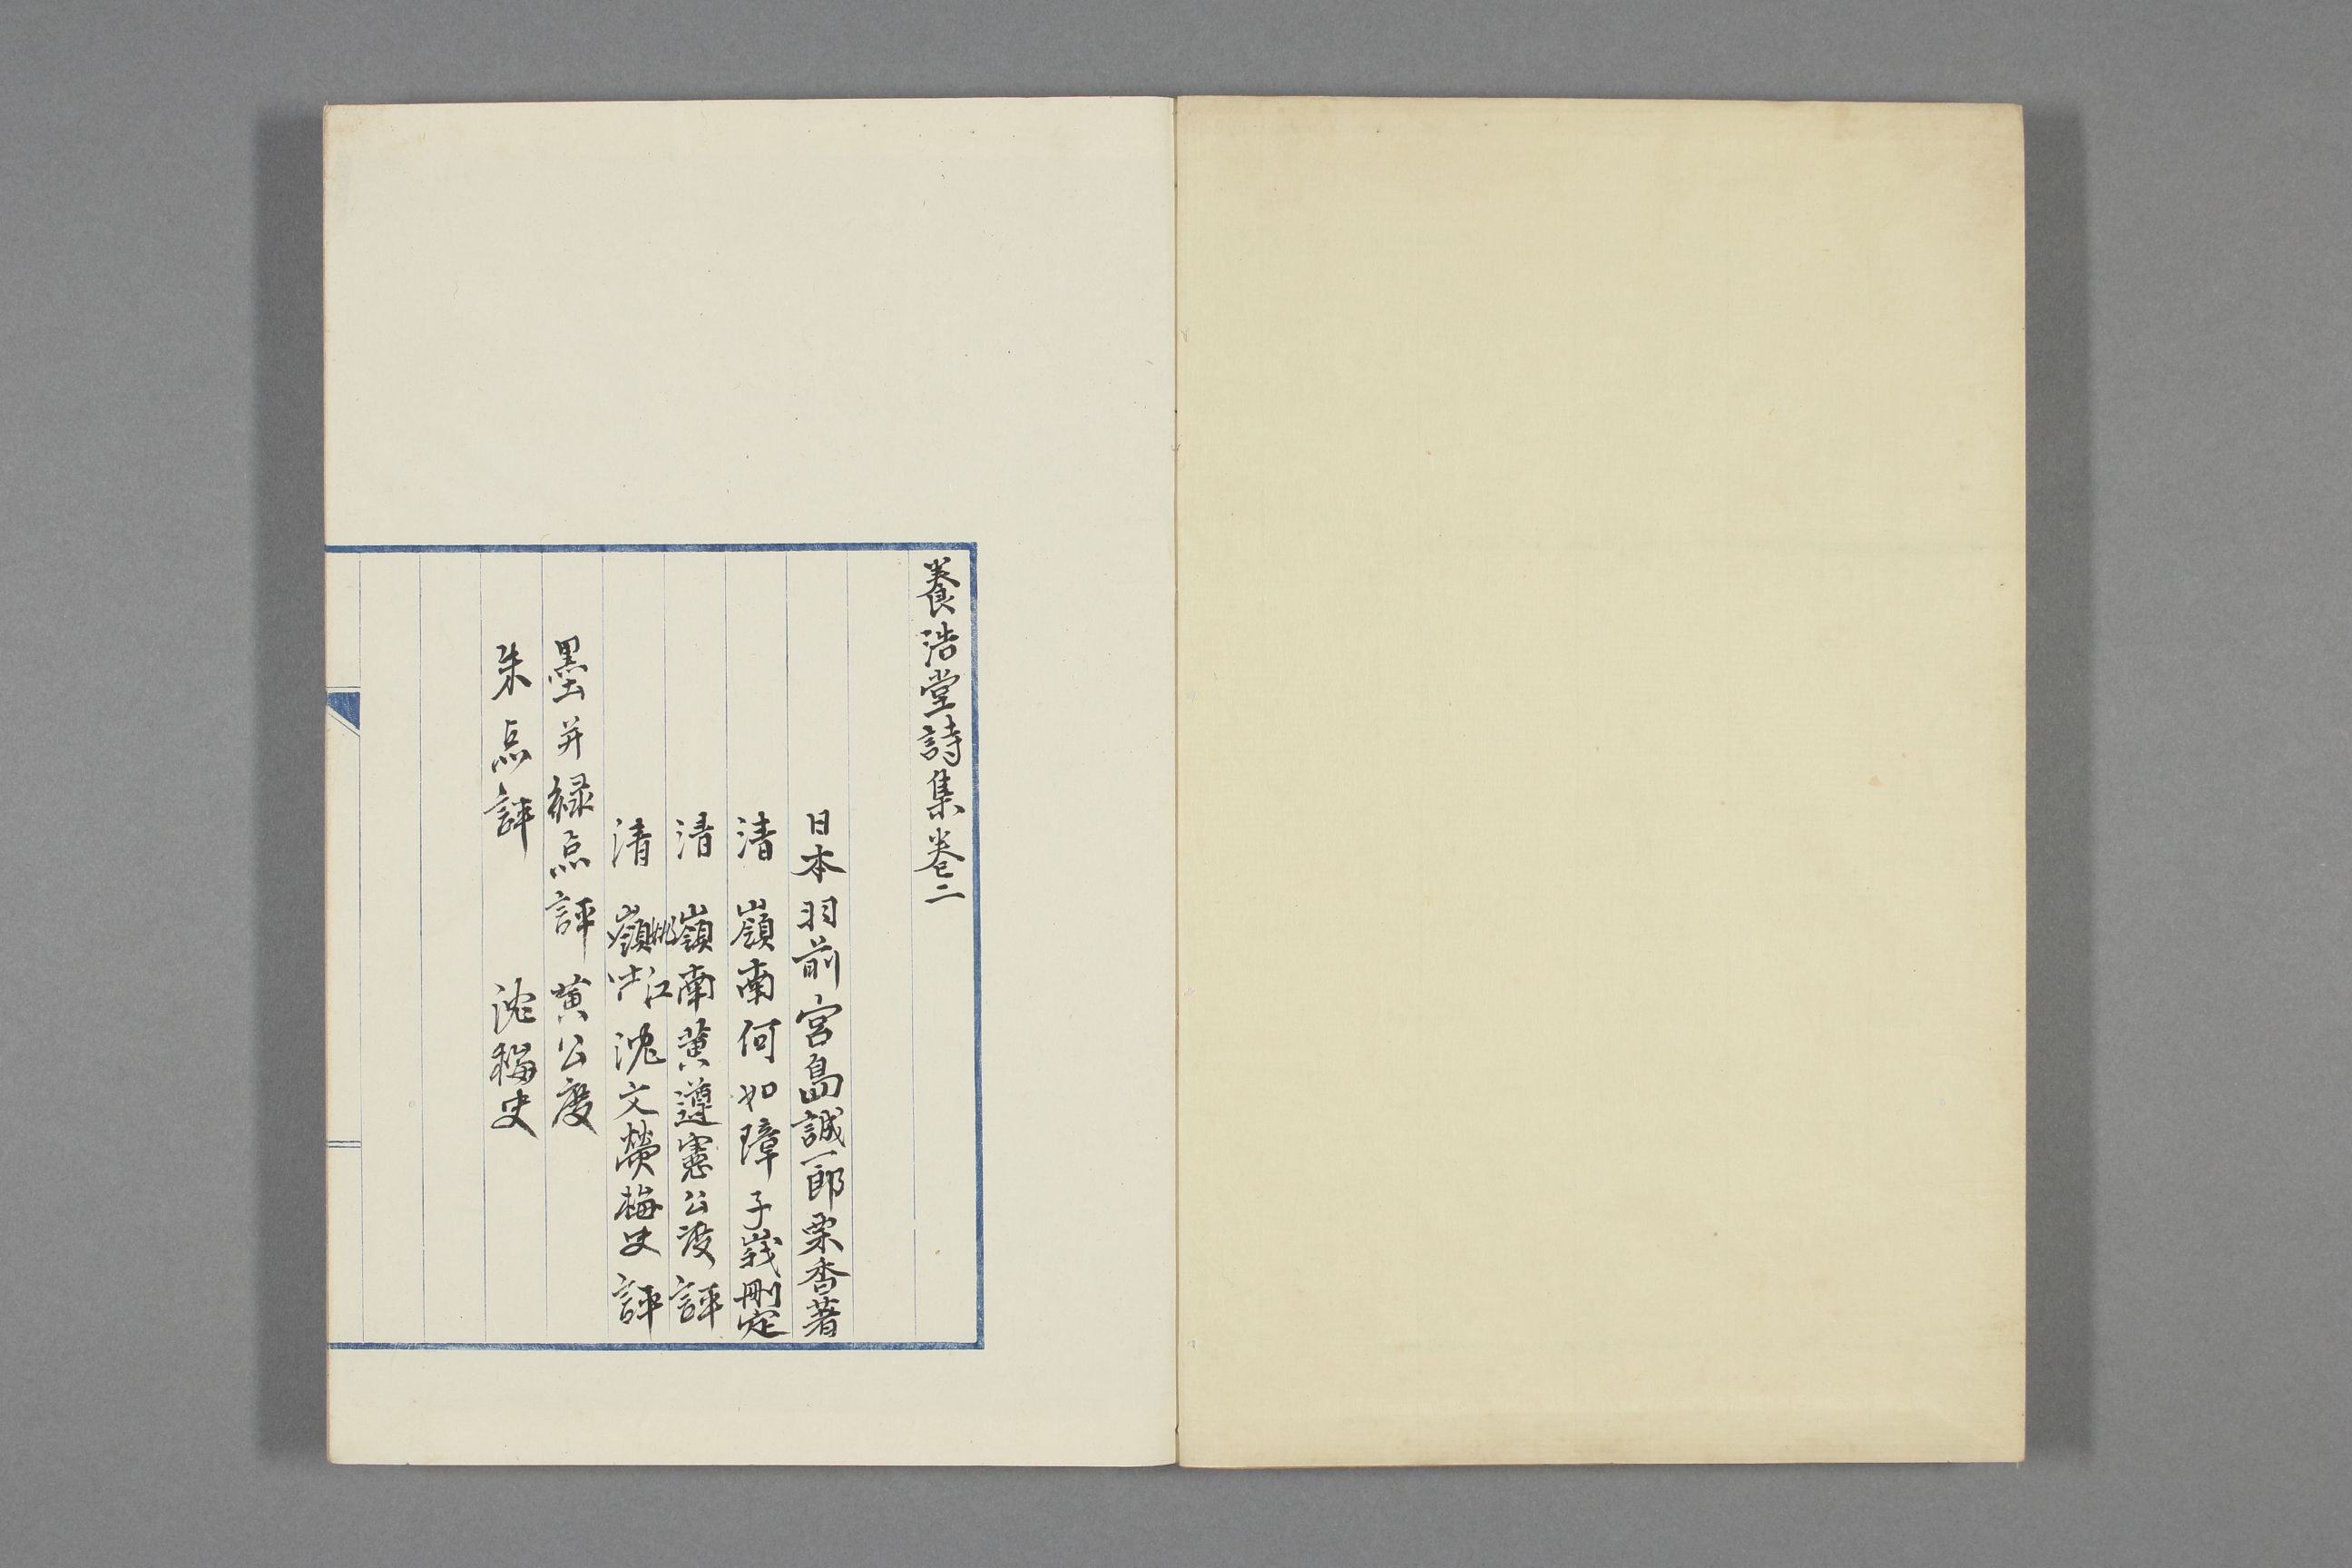 養浩堂詩集卷二
日本羽前宮島誠一郎栗香著
清 嶺南何如璋子峩刪定
清 嶺南黄遵憲公度評
姚江
清 嶺 沈文熒梅史評
墨并緑点評 黄公度
朱点評 沈梅史